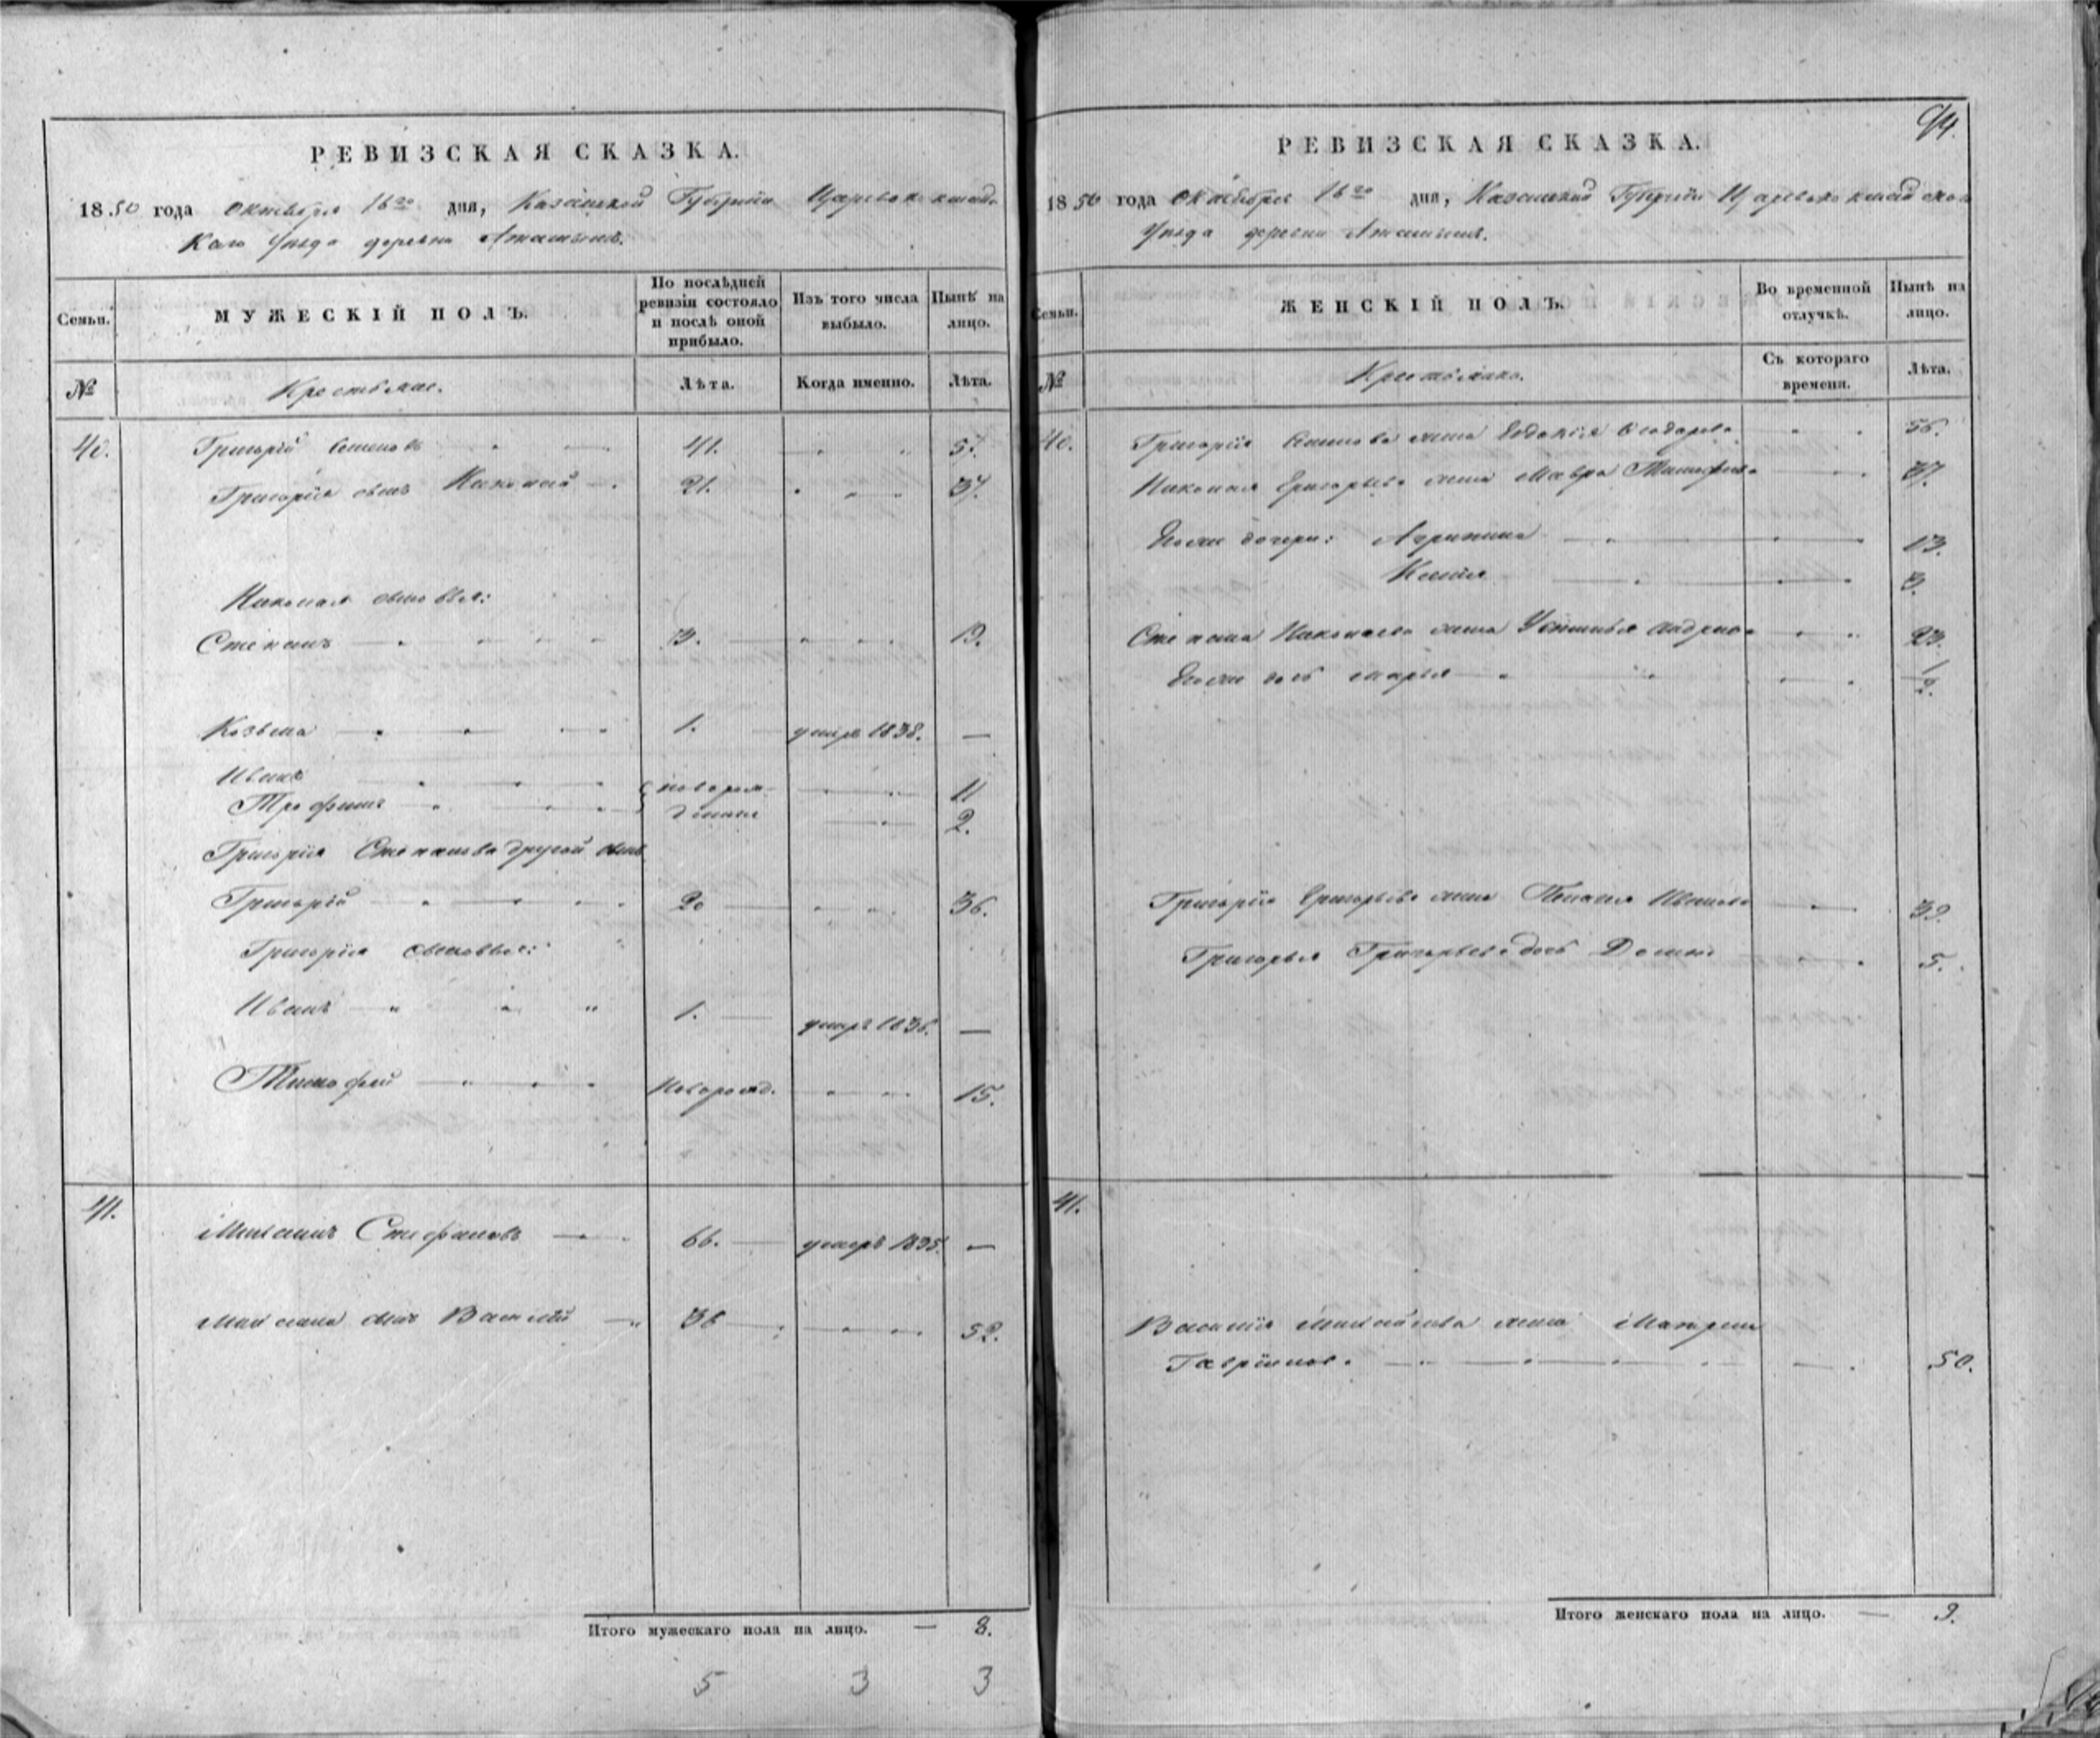 РЕВИЗСКАЯ СКАЗКА.
1850 года октября 16го дня, Казанской Губернии Царевококшай
каго Уѣзда деревни
Семьи.
МУЖЕСКІЙ ПОЛЪ.
По послѣдней
ревизіи состояло
и послѣ оной
прибыло.
Изъ того числа
выбыло.
Нынѣ на
лицо.
№
Крестьяне.
Лѣта.
Когда именно.
Лѣта.
40.
Григорій 41. 57.
Григорія сынъ Николай 21. 37.
Николая сыновья:
Степанъ 3. 19.
Козьма 1. умеръ 1838. —
Иванъ новорож- 11
Трофимъ денные 2.
Григорія Степанова другой сынъ
Григорій 20 36.
Григорія сыновья:
Иванъ 1. умеръ 1836. —
Тимофей Новорожд. 15.
41.
Стефановъ 66. умеръ 1835. —
сынъ Василій 36 52.
Итого мужескаго пола на лицо. — 8.
5 3 3
94.
РЕВИЗСКАЯ СКАЗКА.
1850 года октября 16го дня, Казанской Губерніи Царевококшайскаго
Уѣзда деревни
Семьи.
ЖЕНСКІЙ ПОЛЪ.
Во временной
отлучкѣ.
Нынѣ на
лицо.
№
Крестьянъ.
Съ котораго
времени.
Лѣта.
40.
Григорія жена Евдокія Ѳеодорова 56.
Николая Григорьева жена Мавра 37.
дочери: Агрипина 13.
3.
Степана Николаева жена Устинья 23.
дочь Марья 1/2.
Григорія Григорьева жена Пелагея Иванова 39.
Григорья Григорьева дочь 5.
41.
Василія жена Матрена
Гаврилова. 50.
Итого женскаго пола на лицо. — 9.